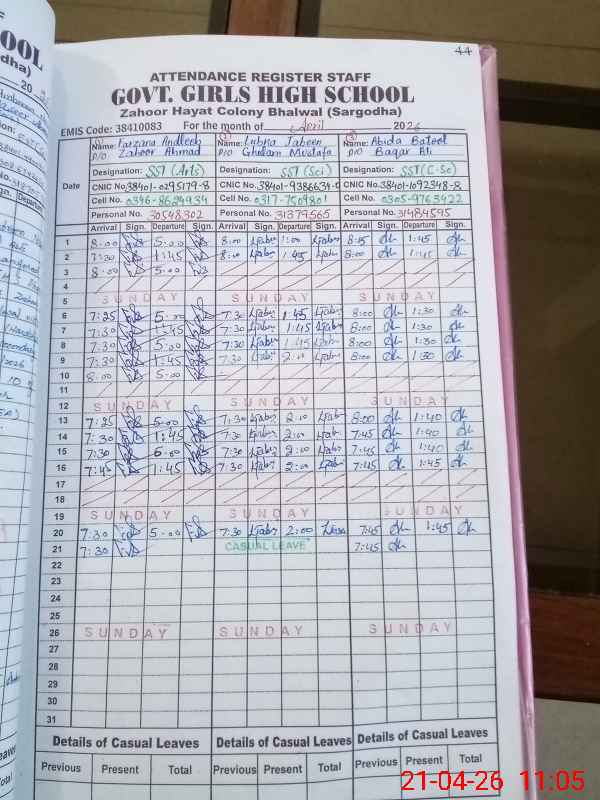 44
ATTENDANCE REGISTER STAFF
GOVT. GIRLS HIGH SCHOOL
Zahoor Hayat Colony Bhalwal (Sargodha)
EMIS Code: 38410083 For the month of April 2026
Name: Farzana Andleeb Name: Lubna Jabeen Name: Abida Batool
D/O Zahoor Ahmad D/O Ghulam Mustafa D/O Baqar Ali
Designation: SST (Arts) Designation: SST (Sci) Designation: SST (C-Sc)
Date CNIC No. 38401-0295179-8 CNIC No. 38401-9386634- CNIC No. 38401-1092348-8
Cell No. 0346-8629934 Cell No. 0317-7509801 Cell No. 0305-9763422
Personal No. 30548302 Personal No. 31379565 Personal No. 31484595
Arrival Sign. Departure Sign. Arrival Sign. Departure Sign. Arrival Sign. Departure Sign.
1 8:00 5:00 8:00 1:00 8:15 1:45
2 7:30 1:45 8:00 1:45 8:00 1:45
3 8:00 5:00
4
5 SUNDAY SUNDAY SUNDAY
6 7:25 5:00 7:30 1:45 8:00 1:30
7 7:30 1:45 7:30 1:45 8:00 1:30
8 7:30 5:00 7:30 1:45 8:00 1:30
9 7:30 1:45 7:30 2:00 8:00 1:30
10 8:00 5:00
11
12 SUNDAY SUNDAY SUNDAY
13 7:25 5:00 7:30 2:10 8:00 1:40
14 7:30 1:45 7:30 2:00 7:45 1:40
15 7:30 7:30 2:00 7:45 1:40
16 7:45 1:45 7:30 2:00 7:45 1:45
17
18
19 SUNDAY SUNDAY SUNDAY
20 7:30 5:00 7:30 2:00 7:45 1:45
21 7:30 CASUAL LEAVE 7:45
22
23
24
25
26 SUNDAY SUNDAY SUNDAY
27
28
29
30
31
Details of Casual Leaves Details of Casual Leaves Details of Casual Leaves
Previous Present Total Previous Present Total Previous Present Total
21-04-26 11:05